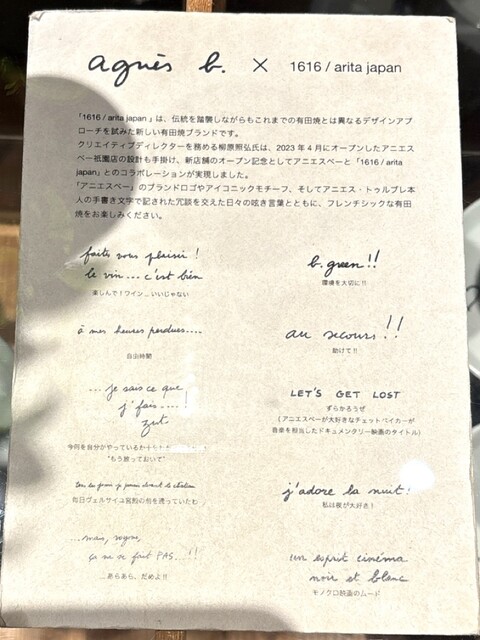 agnès b. × 1616 / arita japan
「1616 / arita japan 」は、伝統を踏襲しながらもこれまでの有田焼とは異なるデザインアプ
ローチを試みた新しい有田焼ブランドです。
クリエイティブディレクターを務める柳原照弘氏は、2023 年 4 月にオープンしたアニエス
ベー祇園店の設計も手掛け、新店舗のオープン記念としてアニエスベーと「1616 / arita
japan」とのコラボレーションが実現しました。
「アニエスベー」のブランドロゴやアイコニックモチーフ、そしてアニエス・トゥルブレ本
人の手書き文字で記された冗談を交えた日々の呟き言葉とともに、フレンチシックな有田
焼をお楽しみください。
faites vous plaisir !
le vin... c'est bien
楽しんで！ワイン... いいじゃない
b. green!!
環境を大切に!!
à mes heures perdues....
自由時間
au secours!!
助けて!!
... je sais ce que
j'fais.....!
zut
今何を自分がやっているか
"もう放っておいて"
LET'S GET LOST
ずらかろうぜ
( アニエスベーが大好きなチェットベイカーが
音楽を担当したドキュメンタリー映画のタイトル)
tous les jours je passais devant le château
毎日ヴェルサイユ宮殿の前を通っていたわ
j'adore la nuit!
私は夜が大好き！
...mais, voyons,
ça ne se fait PAS...!!
...あらあら、だめよ!!
un esprit cinéma
noir et blanc
モノクロ映画のムード